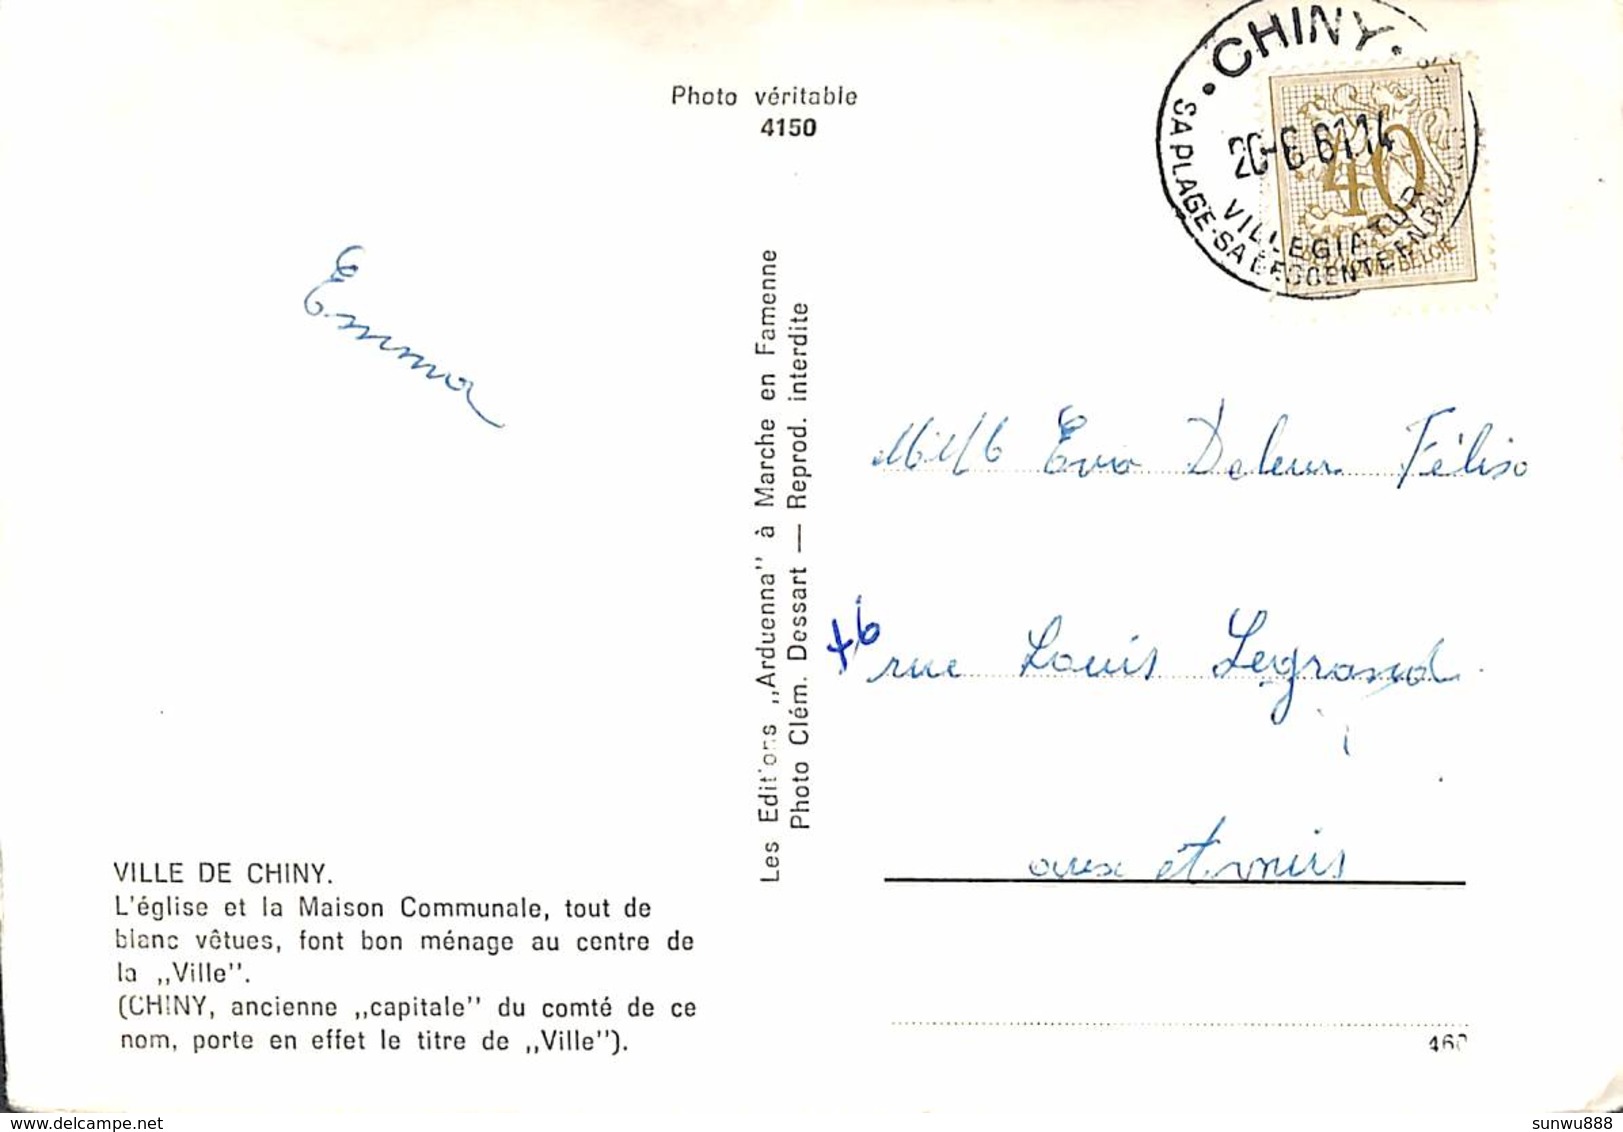 Photo véritable
4150
CHINY
SA PLAGE-SA DESCENTE EN BA
VILLEGIATUR
40
BELGIE
Emma
Les Editions „Arduenna" à Marche en Famenne
Photo Clém. Dessart — Reprod. interdite
Eva Deleur Félise
46 rue Louis Legrand
VILLE DE CHINY.
L'église et la Maison Communale, tout de
blanc vêtues, font bon ménage au centre de
la „Ville".
(CHINY, ancienne „capitale" du comté de ce
nom, porte en effet le titre de „Ville").
www.delcampe.net
sunwu888